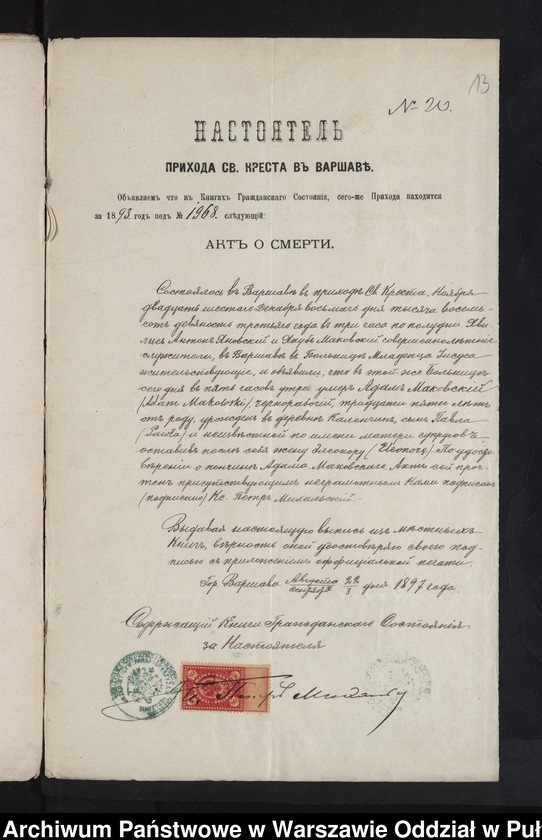 13
№ 20.
НАСТОЯТЕЛЬ
ПРИХОДА СВ. КРЕСТА ВЪ ВАРШАВѢ.
Объявляемъ что въ Книгахъ Гражданскаго Состоянія, сего-же Прихода находится
за 1893 годъ подъ № 1968. слѣдующій:
АКТЪ О СМЕРТИ.
Состоялось въ Варшавѣ въ приходѣ Св. Креста, Ноября
двадцать шестаго Декабря восьмаго дня тысяча восемь-
сотъ девяносто третьяго года въ три часа по полудни. Яви-
лись Антонъ Яновскій и Якубъ Маковскій совершеннолѣтніе
служители, въ Варшавѣ въ Больницѣ Младенца Іисуса
жительствующіе, и объявили, что въ этой-же Больницѣ
сего дня въ пять часовъ утра умеръ Адамъ Маковскій
(Adam Makowski) чернорабочій, тридцати пяти лѣтъ
отъ роду, урожденъ въ деревнѣ Каленчинъ, сынъ Павла
(Pawła) и неизвѣстной по имени матери супруговъ
оставивъ послѣ себя жену Элеонору (Eleonorę). По удосто-
вѣреніи о кончинѣ Адама Маковскаго, Актъ сей про-
чтенъ присутствующимъ неграмотнымъ Нами подписанъ
(подписано) Кс. Петръ Михальскій.
Выдавая настоящую выпись изъ мѣстныхъ
Книгъ, вѣрность оной удостовѣряю своею под-
писью съ приложеніемъ оффиціальной печати.
Гор. Варшава Августа 22 / Сентября 3 дня 1897 года.
Содержащій Книги Гражданскаго Состоянія
за Настоятеля
Archiwum Państwowe w Warszawie Oddział w Puł